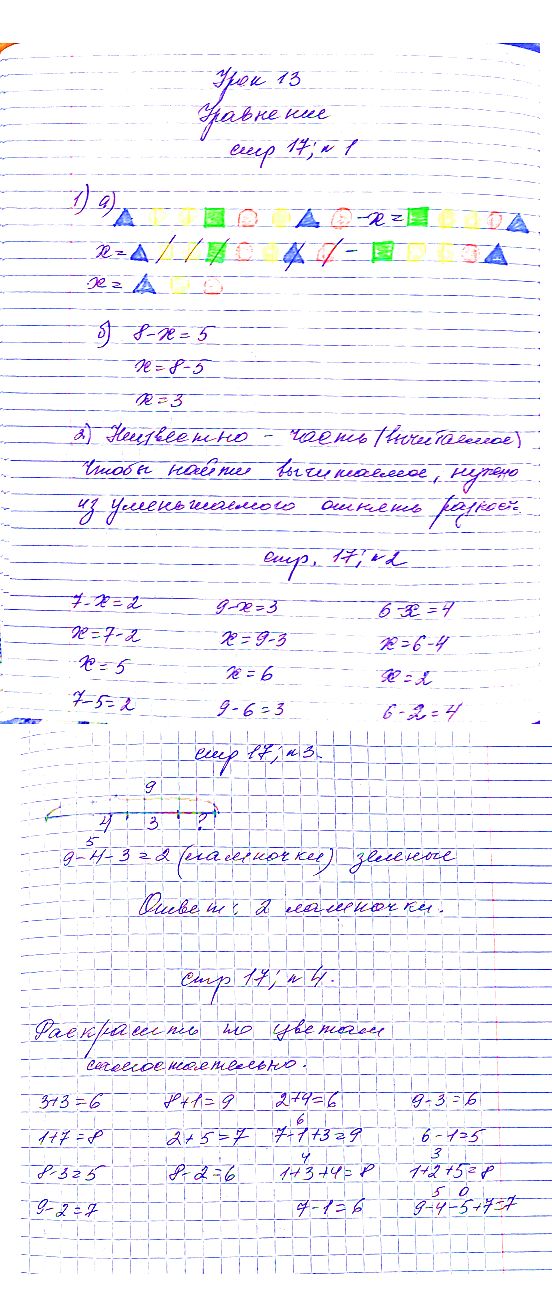 Урок 13
Уравнение
стр 17; №1
1) а)
-х=
х= -
х=
б) 8-х=5
х=8-5
х=3
2) Неизвестно - часть (вычитаемое)
Чтобы найти вычитаемое, нужно
из уменьшаемого отнять разност.
стр. 17; №2
7-х=2 9-х=3 6-х=4
х=7-2 х=9-3 х=6-4
х=5 х=6 х=2
7-5=2 9-6=3 6-2=4
стр 17; №3.
9
4 3 ?
5
9-4-3=2 (лампочки) зеленые
Ответ: 2 лампочки.
стр 17; №4.
Раскрасить по цветам
самостоятельно.
3+3=6 8+1=9 2+4=6 9-3=6
6
1+7=8 2+5=7 7-1+3=9 6-1=5
4 3
8-3=5 8-2=6 1+3+4=8 1+2+5=8
5 0
9-2=7 7-1=6 9-4-5+7=7